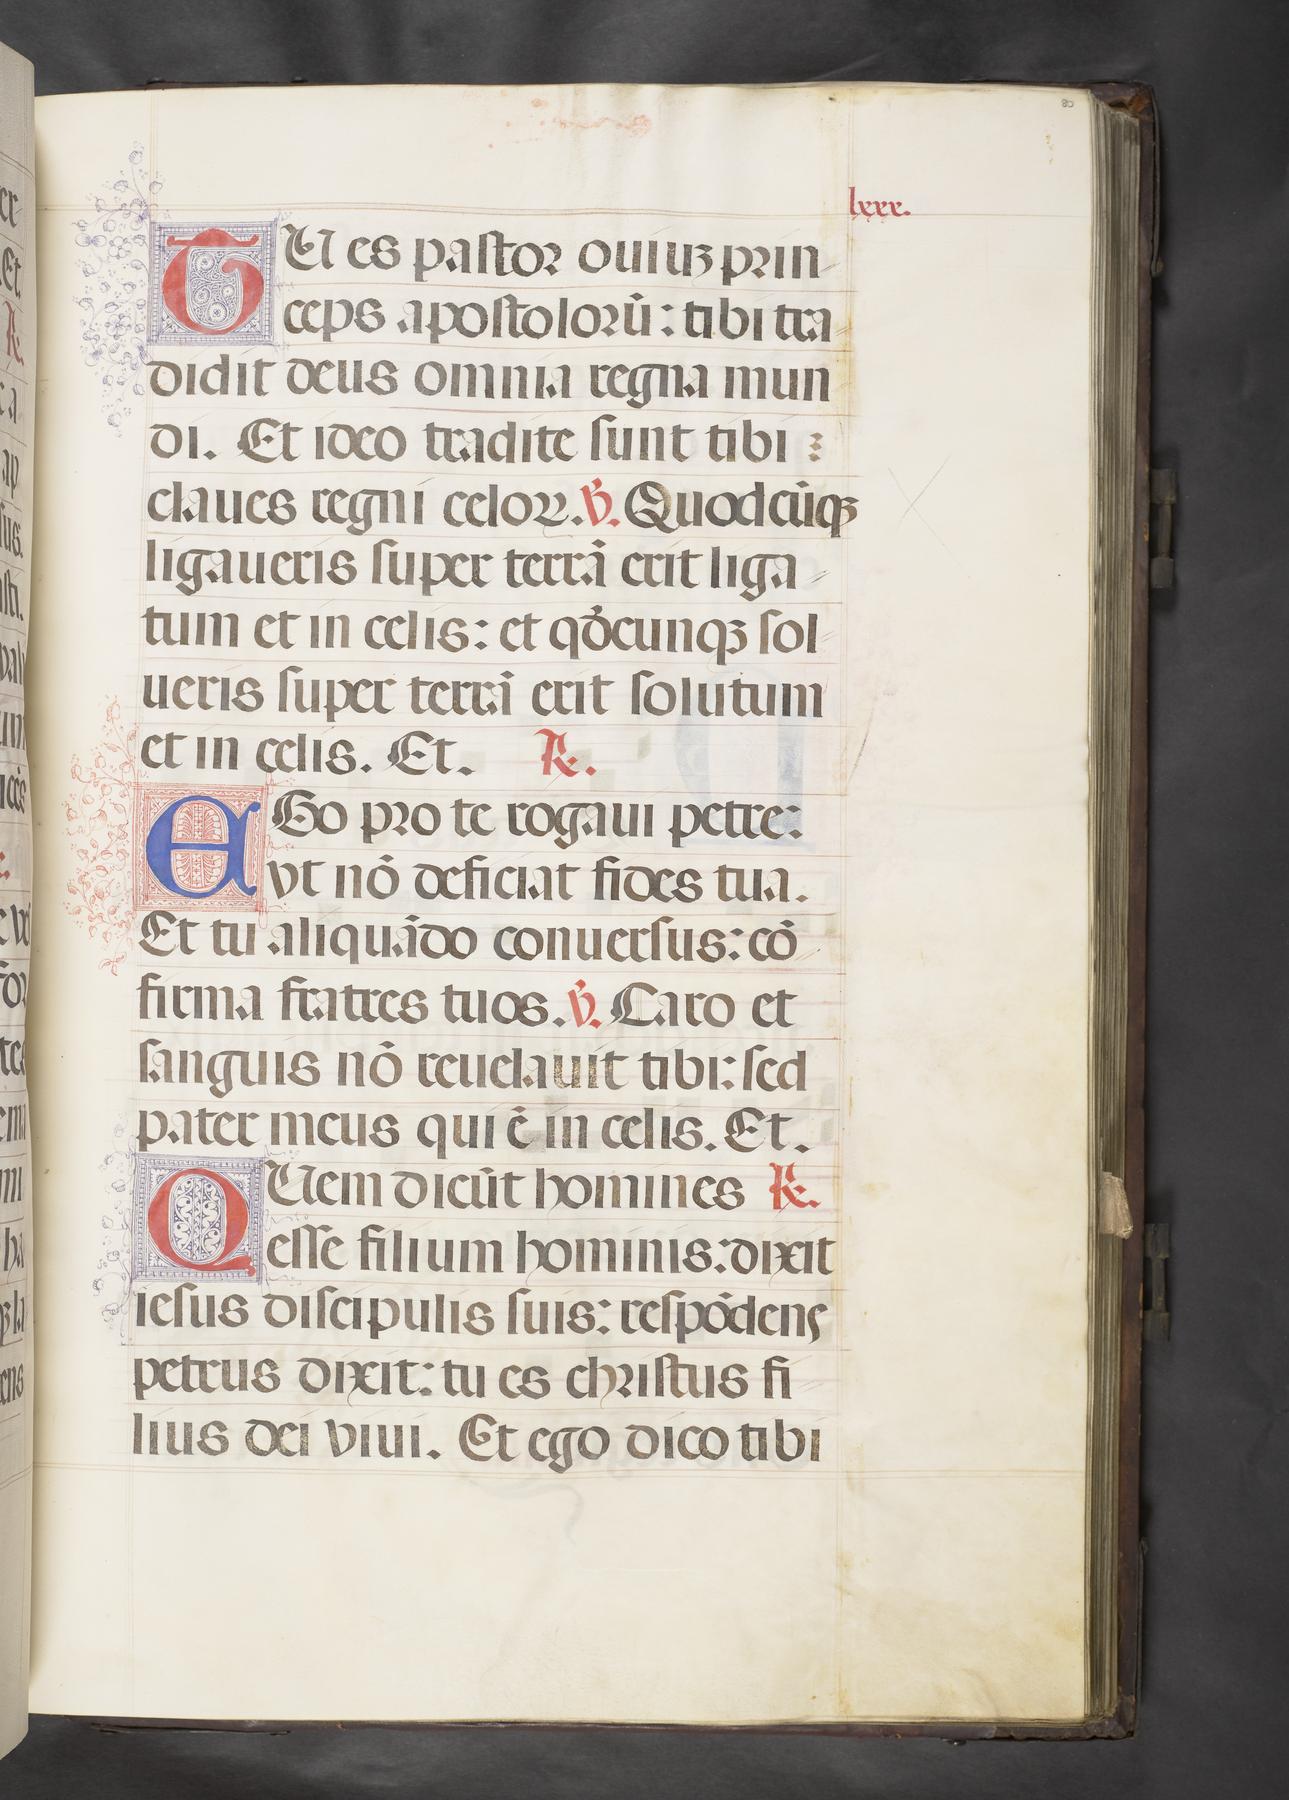 80
lxxx.
TU es pastor ouiuʒ prin
ceps apostolorū: tibi tra
didit deus omnia regna mun
di. Et ideo tradite sunt tibi :
claues regni celoꝝ. ℣. Quodcūqꝫ
ligaueris super terrā erit liga
tum et in celis: et qđcunqꝫ sol
ueris super terrā erit solutum
et in celis. Et. ℟.
EGo pro te rogaui petre:
vt nō deficiat fides tua.
Et tu aliquādo conuersus: cō
firma fratres tuos. ℣. Caro et
sanguis nō reuelauit tibi: sed
pater meus qui ē in celis. Et.
QUem dicūt homines ℟.
esse filium hominis: dixit
iesus discipulis suis: respōdens
petrus dixit: tu es christus fi
lius dei viui. Et ego dico tibi